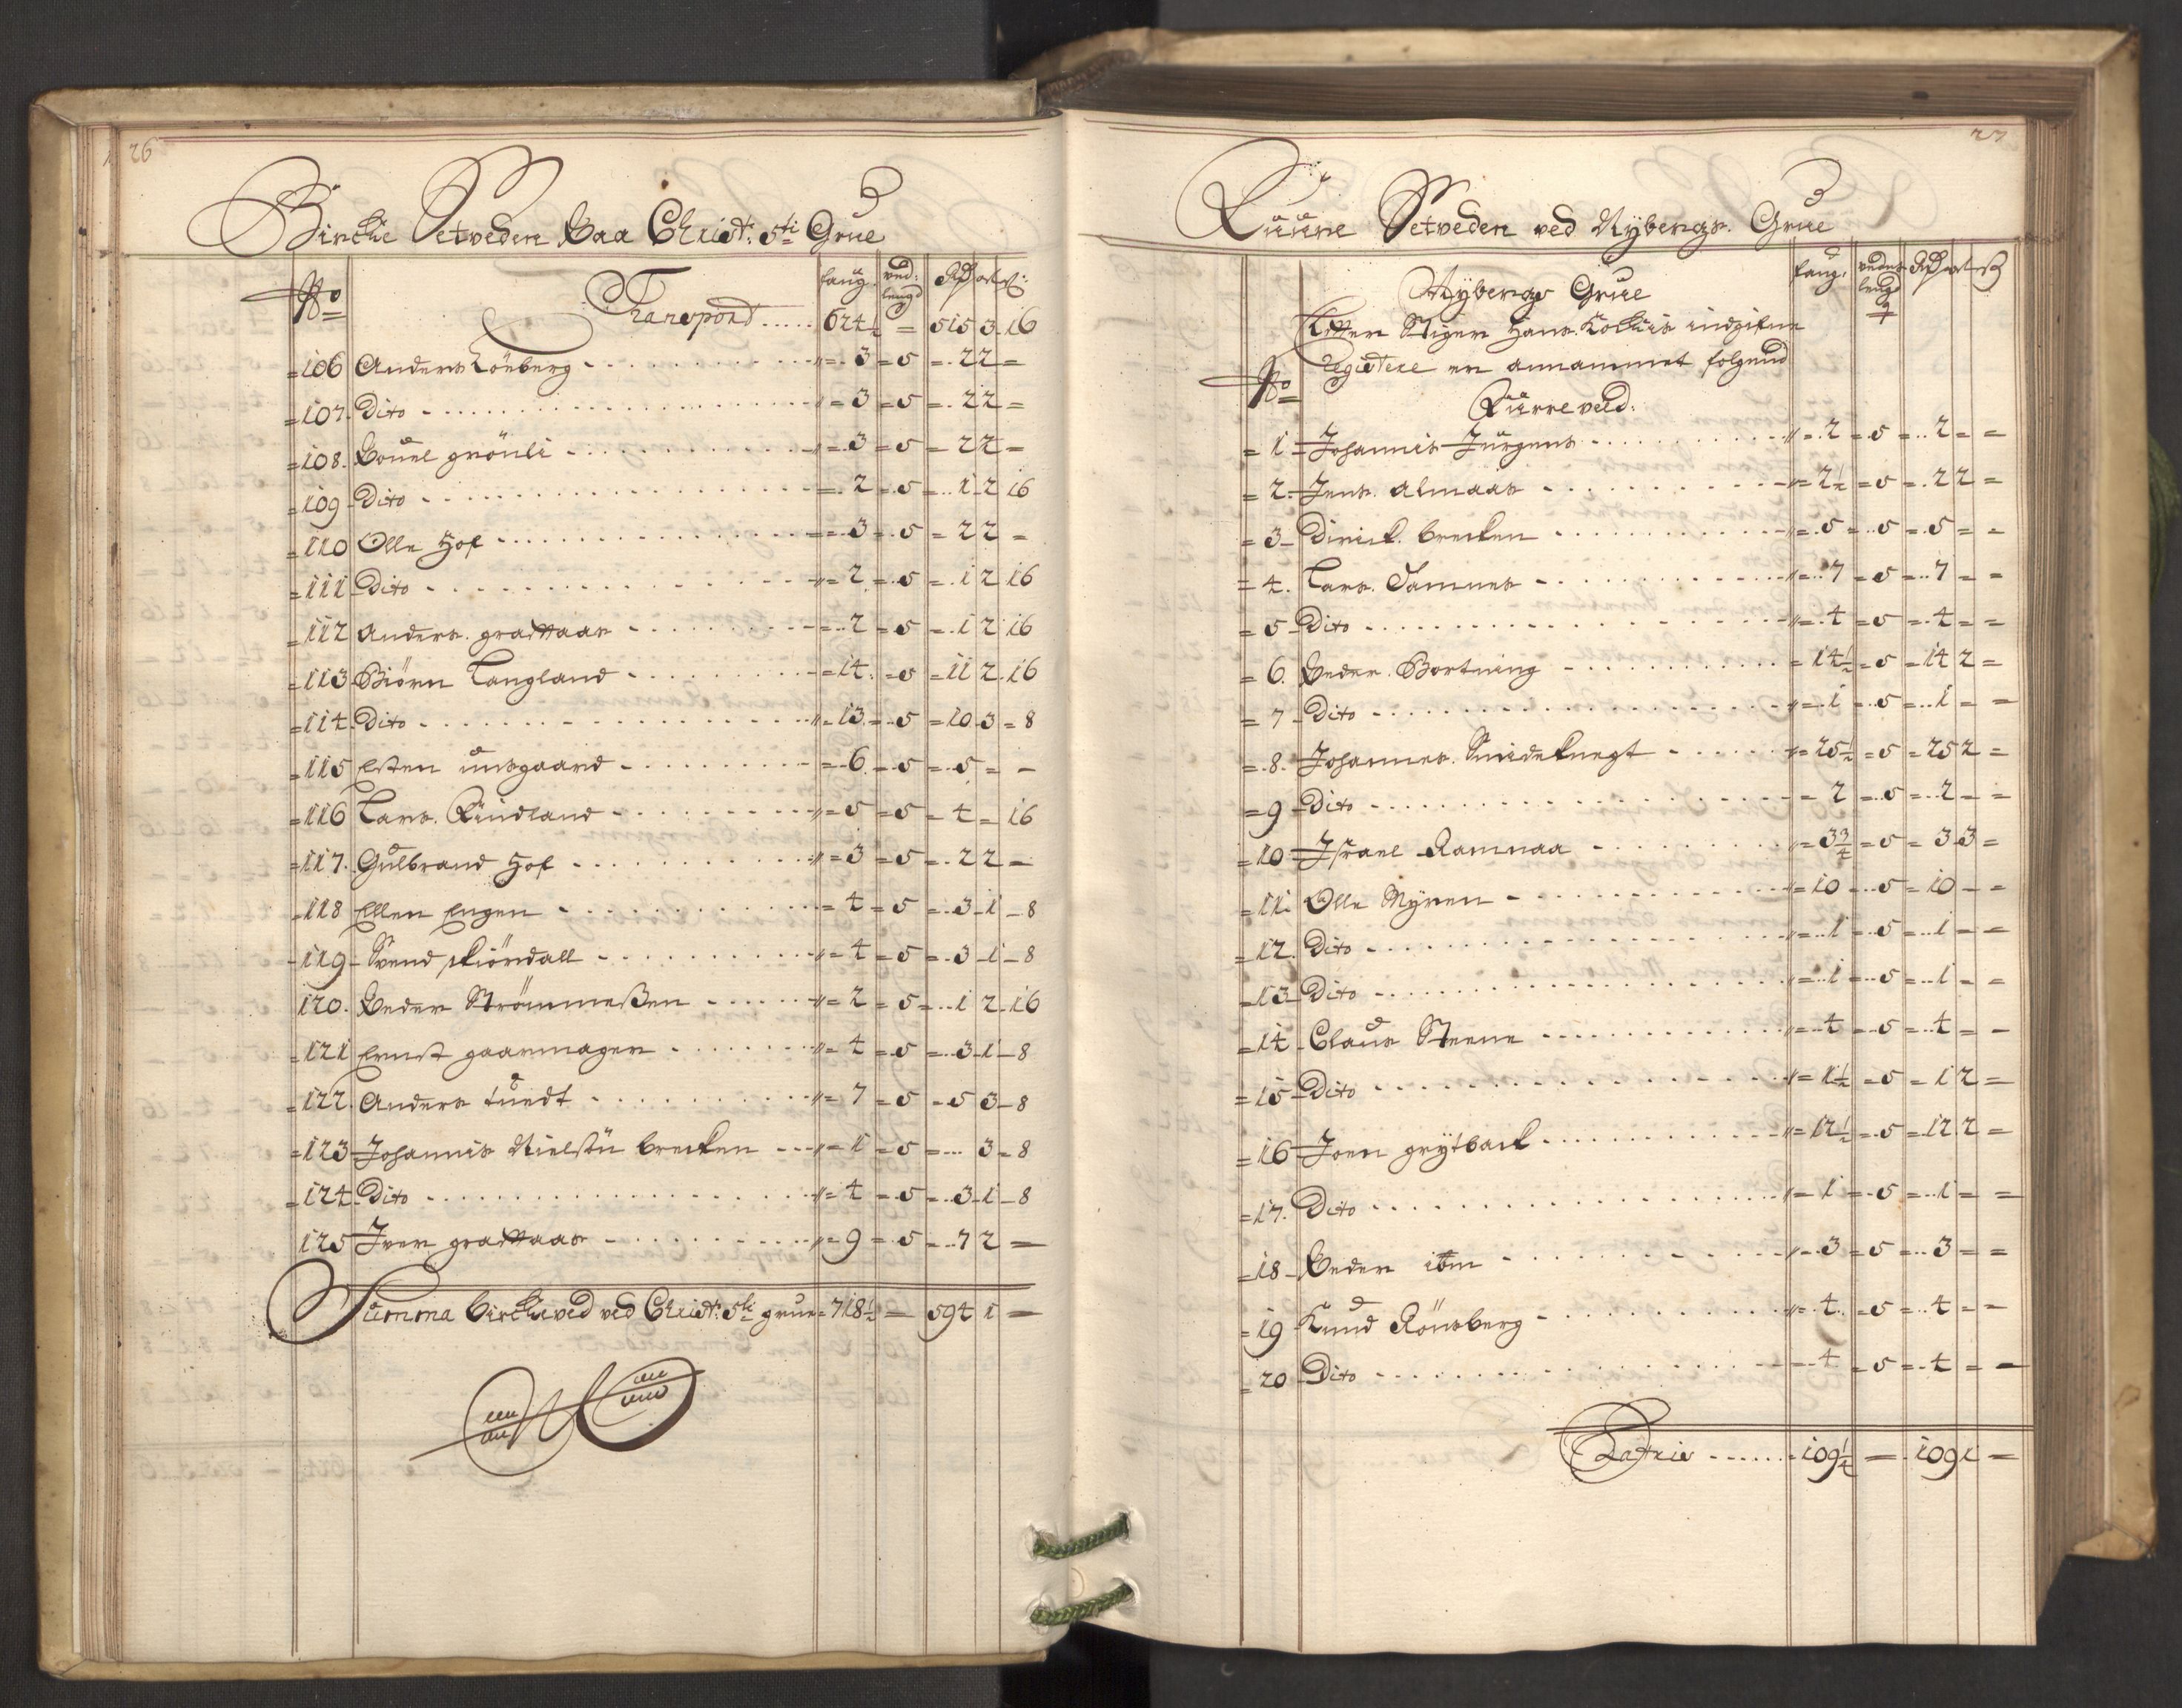 26
Bircke Setveden Paa Christ: 5ti Grue
No Transport ..... faug. 624½ = ved: lengd Rdr ort s: 515 3 16
=106 Anders Lönberg - 3 = 5 = 2 2 =
=107. Dito - 3 = 5 = 2 2 =
=108. Pouel grönli - 3 = 5 = 2 2 =
=109 Dito - 2 = 5 = 1 2 16
=110 Olle Hof - 3 = 5 = 2 2 =
=111 Dito - 2 = 5 = 1 2 16
=112 Anders. graattaas - 2 = 5 = 1 2 16
=113 Biörn Langland - 14 = 5 = 11 2 16
=114 Dito - 13 = 5 = 10 3 = 8
=115 Esten unsgaard - 6 = 5 = 5 = -
=116 Lars. Rundland - 5 = 5 = 4 = 16
=117. Gulbrand Hof - 3 = 5 = 2 2 -
=118 Ellen Engen - 4 = 5 = 3 1 - 8
=119 Svend skiördall - 4 = 5 = 3 1 - 8
120. Peder Strömmeßen - 2 = 5 = 1 2 16
=121 Ernst gaarmager - 4 = 5 = 3 1 - 8
=122. Anders tuedt - 7 = 5 = 5 3 - 8
=123 Johannis Nielsön brecken - 1 = 5 = 3 = 8
=124 Dito - 4 = 5 = 3 1 - 8
125 Iver graattaas - 9 = 5 = 7 2 =
Summa birckeved ved Christ: 5ti grue = 718½ = 594 1 =
27
Kurre Setveden ved Nybergs. Grue
Nybergs Grue faug. vedens lengd Rdr ort s
Efter Stiger Hans. Kockis indgifne
No Registere er annammet folgend
Kurre ved:
= 1 - Johannis Jurgens - 2 = 5 = 2 = =
= 2. Jens. Almaas - 2½ = 5 = 2 2 =
= 3 - Dirick. brecken - 5 = 5 = 5 = =
= 4. Lars. Tamnes - 7 = 5 = 7 = =
= 5 - Dito - 4 = 5 = 4 = =
= 6. Peder. Bortning - 14½ = 5 = 14 2 =
= 7 - Dito - 1 = 5 = 1 = =
= 8. Johannes. Smideknegt - 25½ = 5 = 25 2 =
= 9 - Dito - 2 = 5 = 2 = =
= 10 - Israel Ramnaa - 3¾ = 5 = 3 3 =
= 11. Olle Myren - 10 = 5 = 10 - =
= 12. Dito - 1 = 5 = 1 = =
= 13 - Dito - 1 = 5 = 1 = =
= 14 - Claus Steene - 4 = 5 = 4 = =
= 15 - Dito - 1½ = 5 = 1 2 =
= 16 - Joen grytback - 12½ = 5 = 12 2 =
= 17. Dito - 1 = 5 = 1 = =
= 18 - Peder ibm - 3 = 5 = 3 = =
= 19 Knud Rönsberg - 4 = 5 = 4 = =
= 20 - Dito - 4 = 5 = 4 = =
Latris ...... 109¼ = 109 1 =